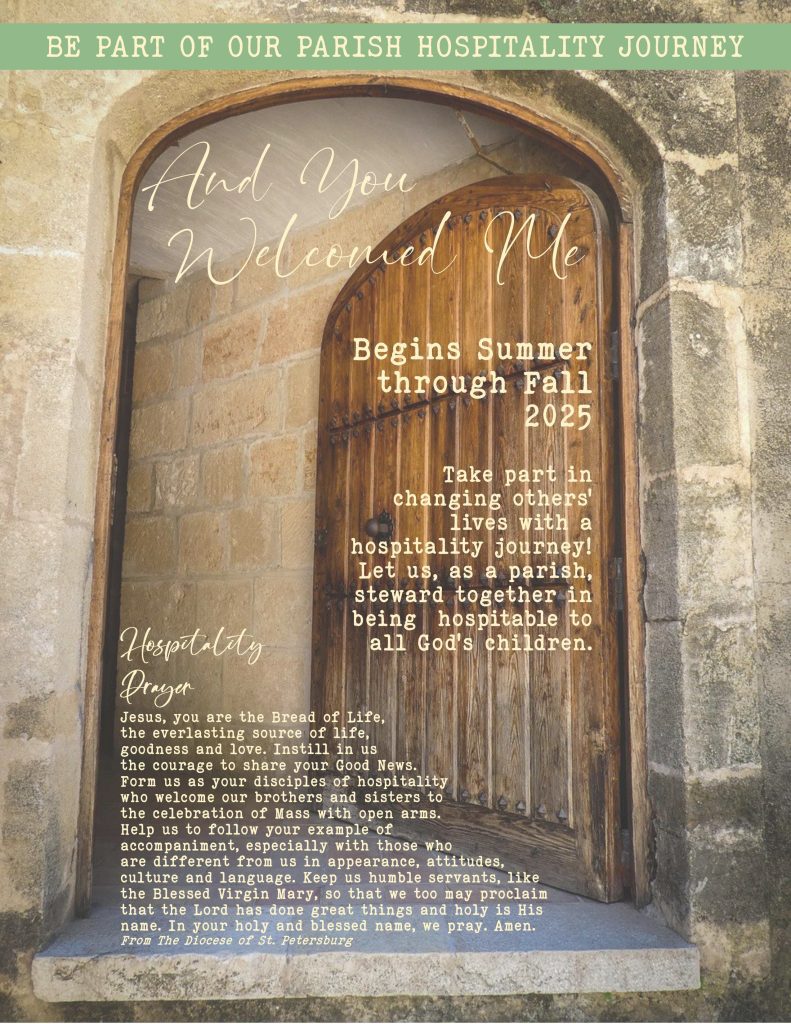 BE PART OF OUR PARISH HOSPITALITY JOURNEY
And You
Welcomed Me
Begins Summer
through Fall
2025
Take part in
changing others'
lives with a
hospitality journey!
Let us, as a parish,
steward together in
being hospitable to
all God's children.
Hospitality
Prayer
Jesus, you are the Bread of Life,
the everlasting source of life,
goodness and love. Instill in us
the courage to share your Good News.
Form us as your disciples of hospitality
who welcome our brothers and sisters to
the celebration of Mass with open arms.
Help us to follow your example of
accompaniment, especially with those who
are different from us in appearance, attitudes,
culture and language. Keep us humble servants, like
the Blessed Virgin Mary, so that we too may proclaim
that the Lord has done great things and holy is His
name. In your holy and blessed name, we pray. Amen.
From The Diocese of St. Petersburg